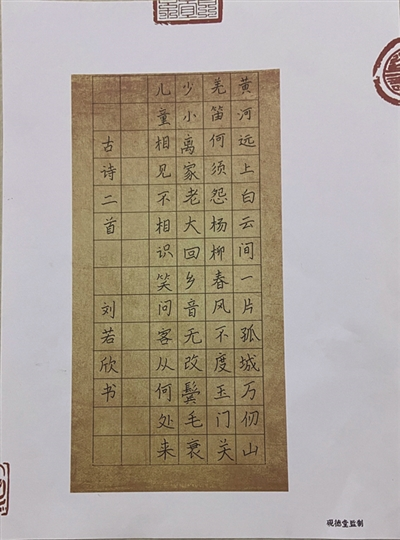 黄河远上白云间一片孤城万仞山
羌笛何须怨杨柳春风不度玉门关
少小离家老大回乡音无改鬓毛衰
儿童相见不相识笑问客从何处来
古诗二首 刘若欣书
砚德堂监制